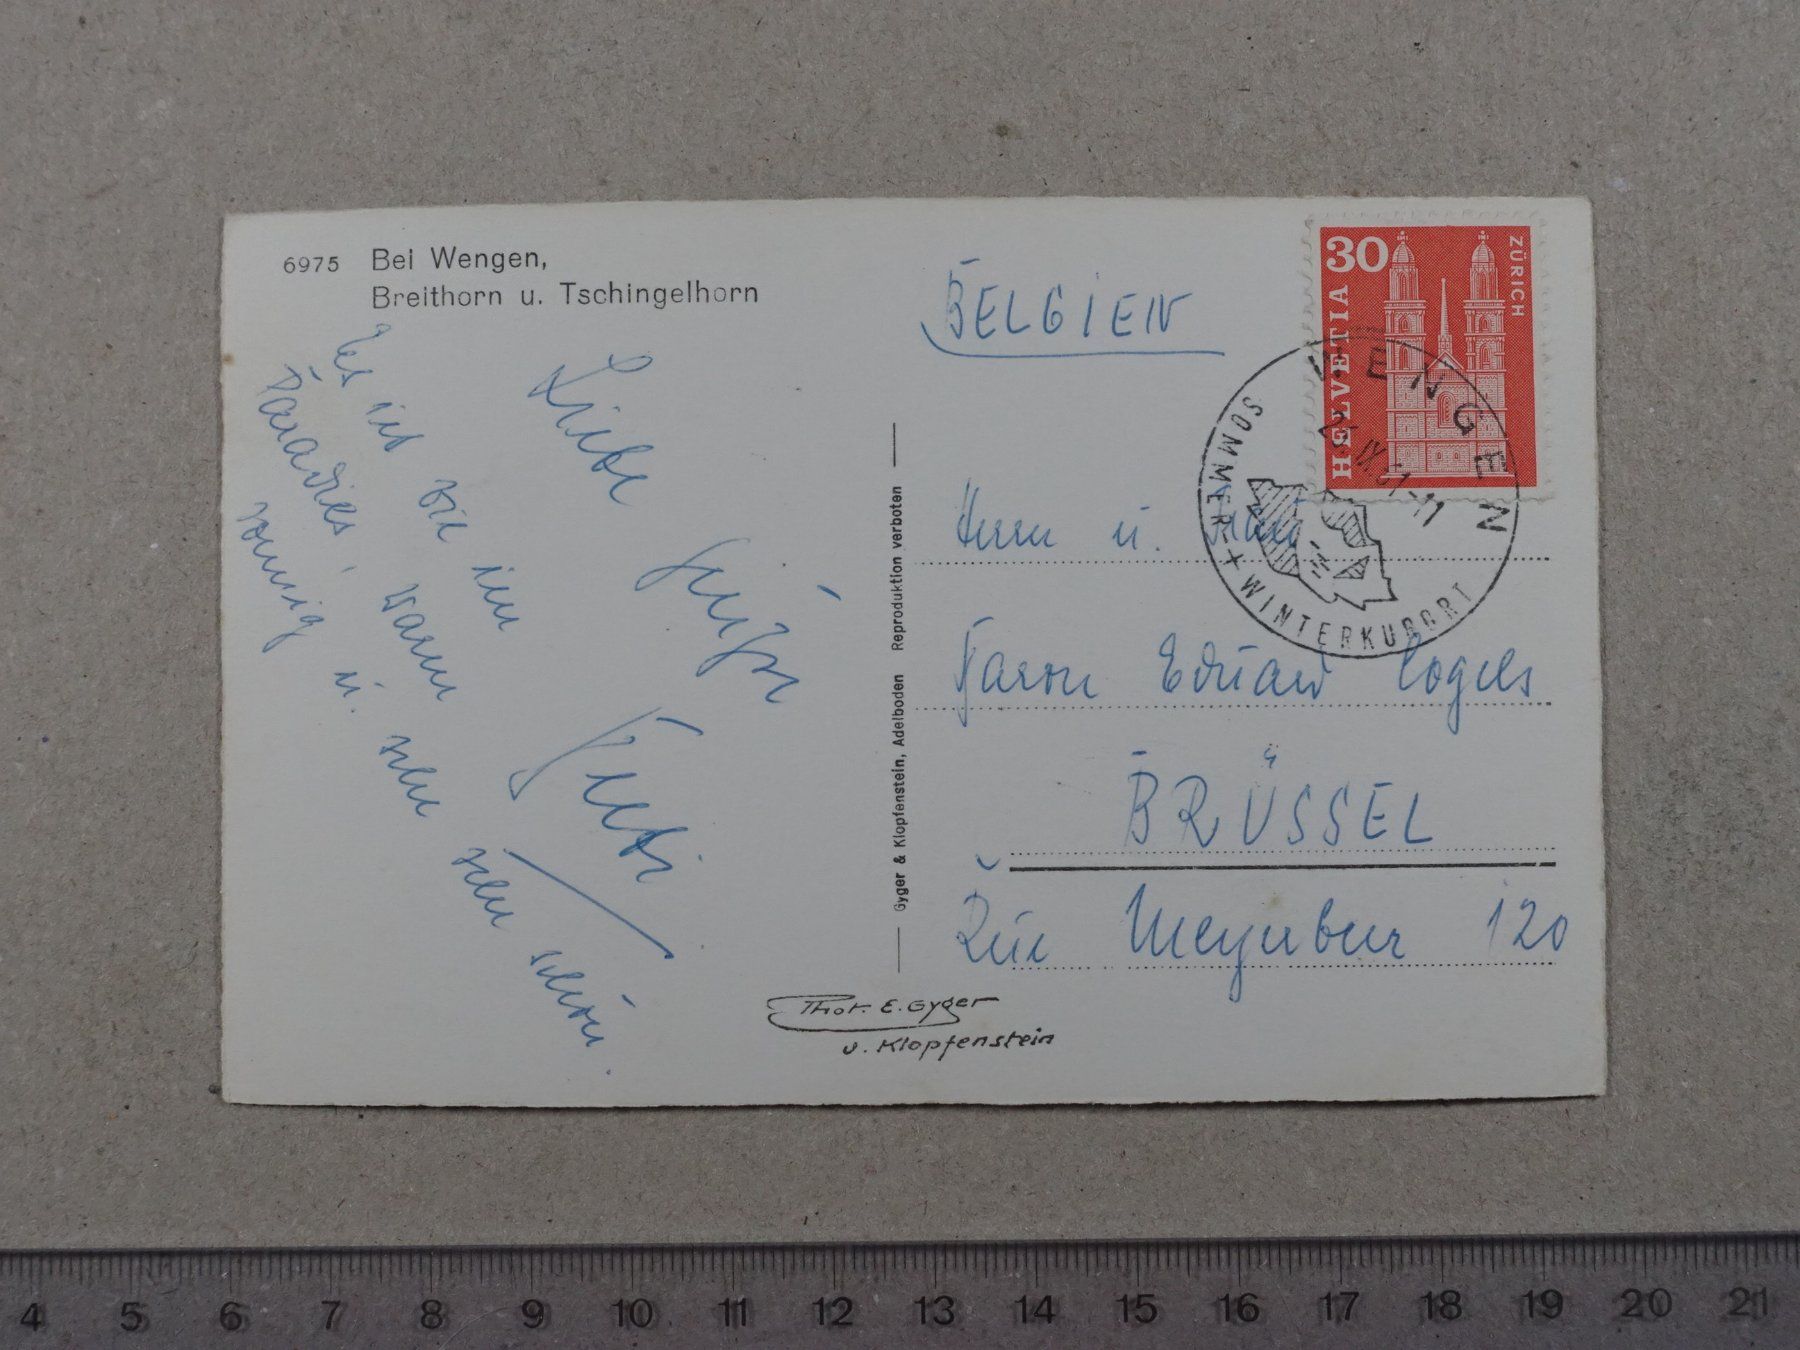 6975 Bei Wengen,
Breithorn u. Tschingelhorn
Es ist wie im
Paradies, warm
sonnig u. sehr sehr schön.
Liebe
Grüße
BELGIEN
Herrn u. Frau
Baron Eduard Cogels
BRÜSSEL
Rue Meyerbeer 120
Gyger & Klopfenstein, Adelboden Reproduktion verboten
Phot. E. Gyger
u. Klopfenstein
30
HELVETIA
ZÜRICH
WENGEN
IX. 61-11
SOMMER + WINTERKURORT
4 5 6 7 8 9 10 11 12 13 14 15 16 17 18 19 20 21